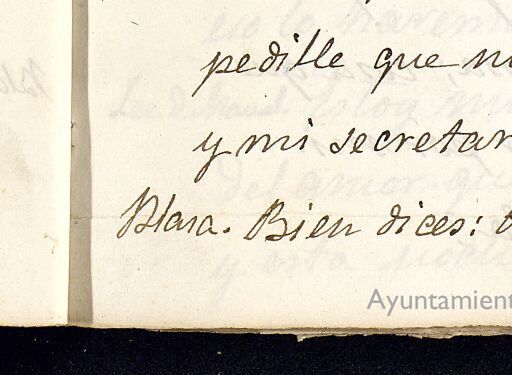 pedille que
y mi secretar
Blasa. Bien dices:
Ayuntamient